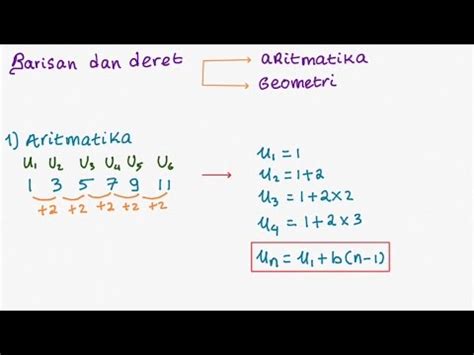 Barisan dan deret
aRitmatika
Geometri
1) Aritmatika
U₁ U₂ U₃ U₄ U₅ U₆
1 3 5 7 9 11
+2 +2 +2 +2 +2
U₁ = 1
U₂ = 1+2
U₃ = 1+2×2
U₄ = 1+2×3
Un = U₁ + b(n-1)